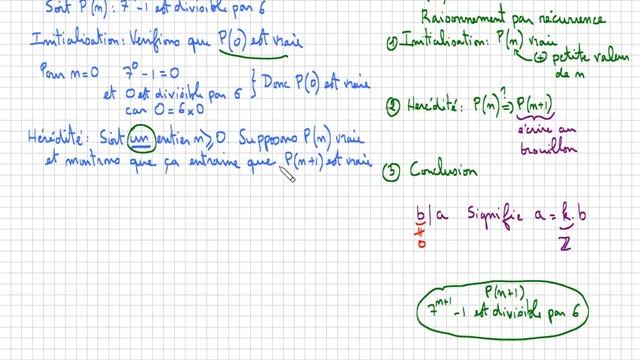 Soit P(n): 7 -1 est divisible par 6
Initialisation: Vérifions que P(0) est vraie
Pour n=0 7⁰-1=0
et 0 est divisible par 6
car 0=6×0
} Donc P(0) est vraie
Hérédité: Soit un entier n⩾0 Supposons P(n) vraie
et montrons que ça entraine que P(n+1) est vraie
Raisonnement par récurrence
① Initialisation: P(n) vraie
⊕ petite valeur
de n
② Hérédité: P(n) ?⇒ P(n+1)
écrire au
brouillon
③ Conclusion
b|a Signifie a = k.b
≠
0
ℤ
P(n+1)
7ⁿ⁺¹ -1 est divisible par 6